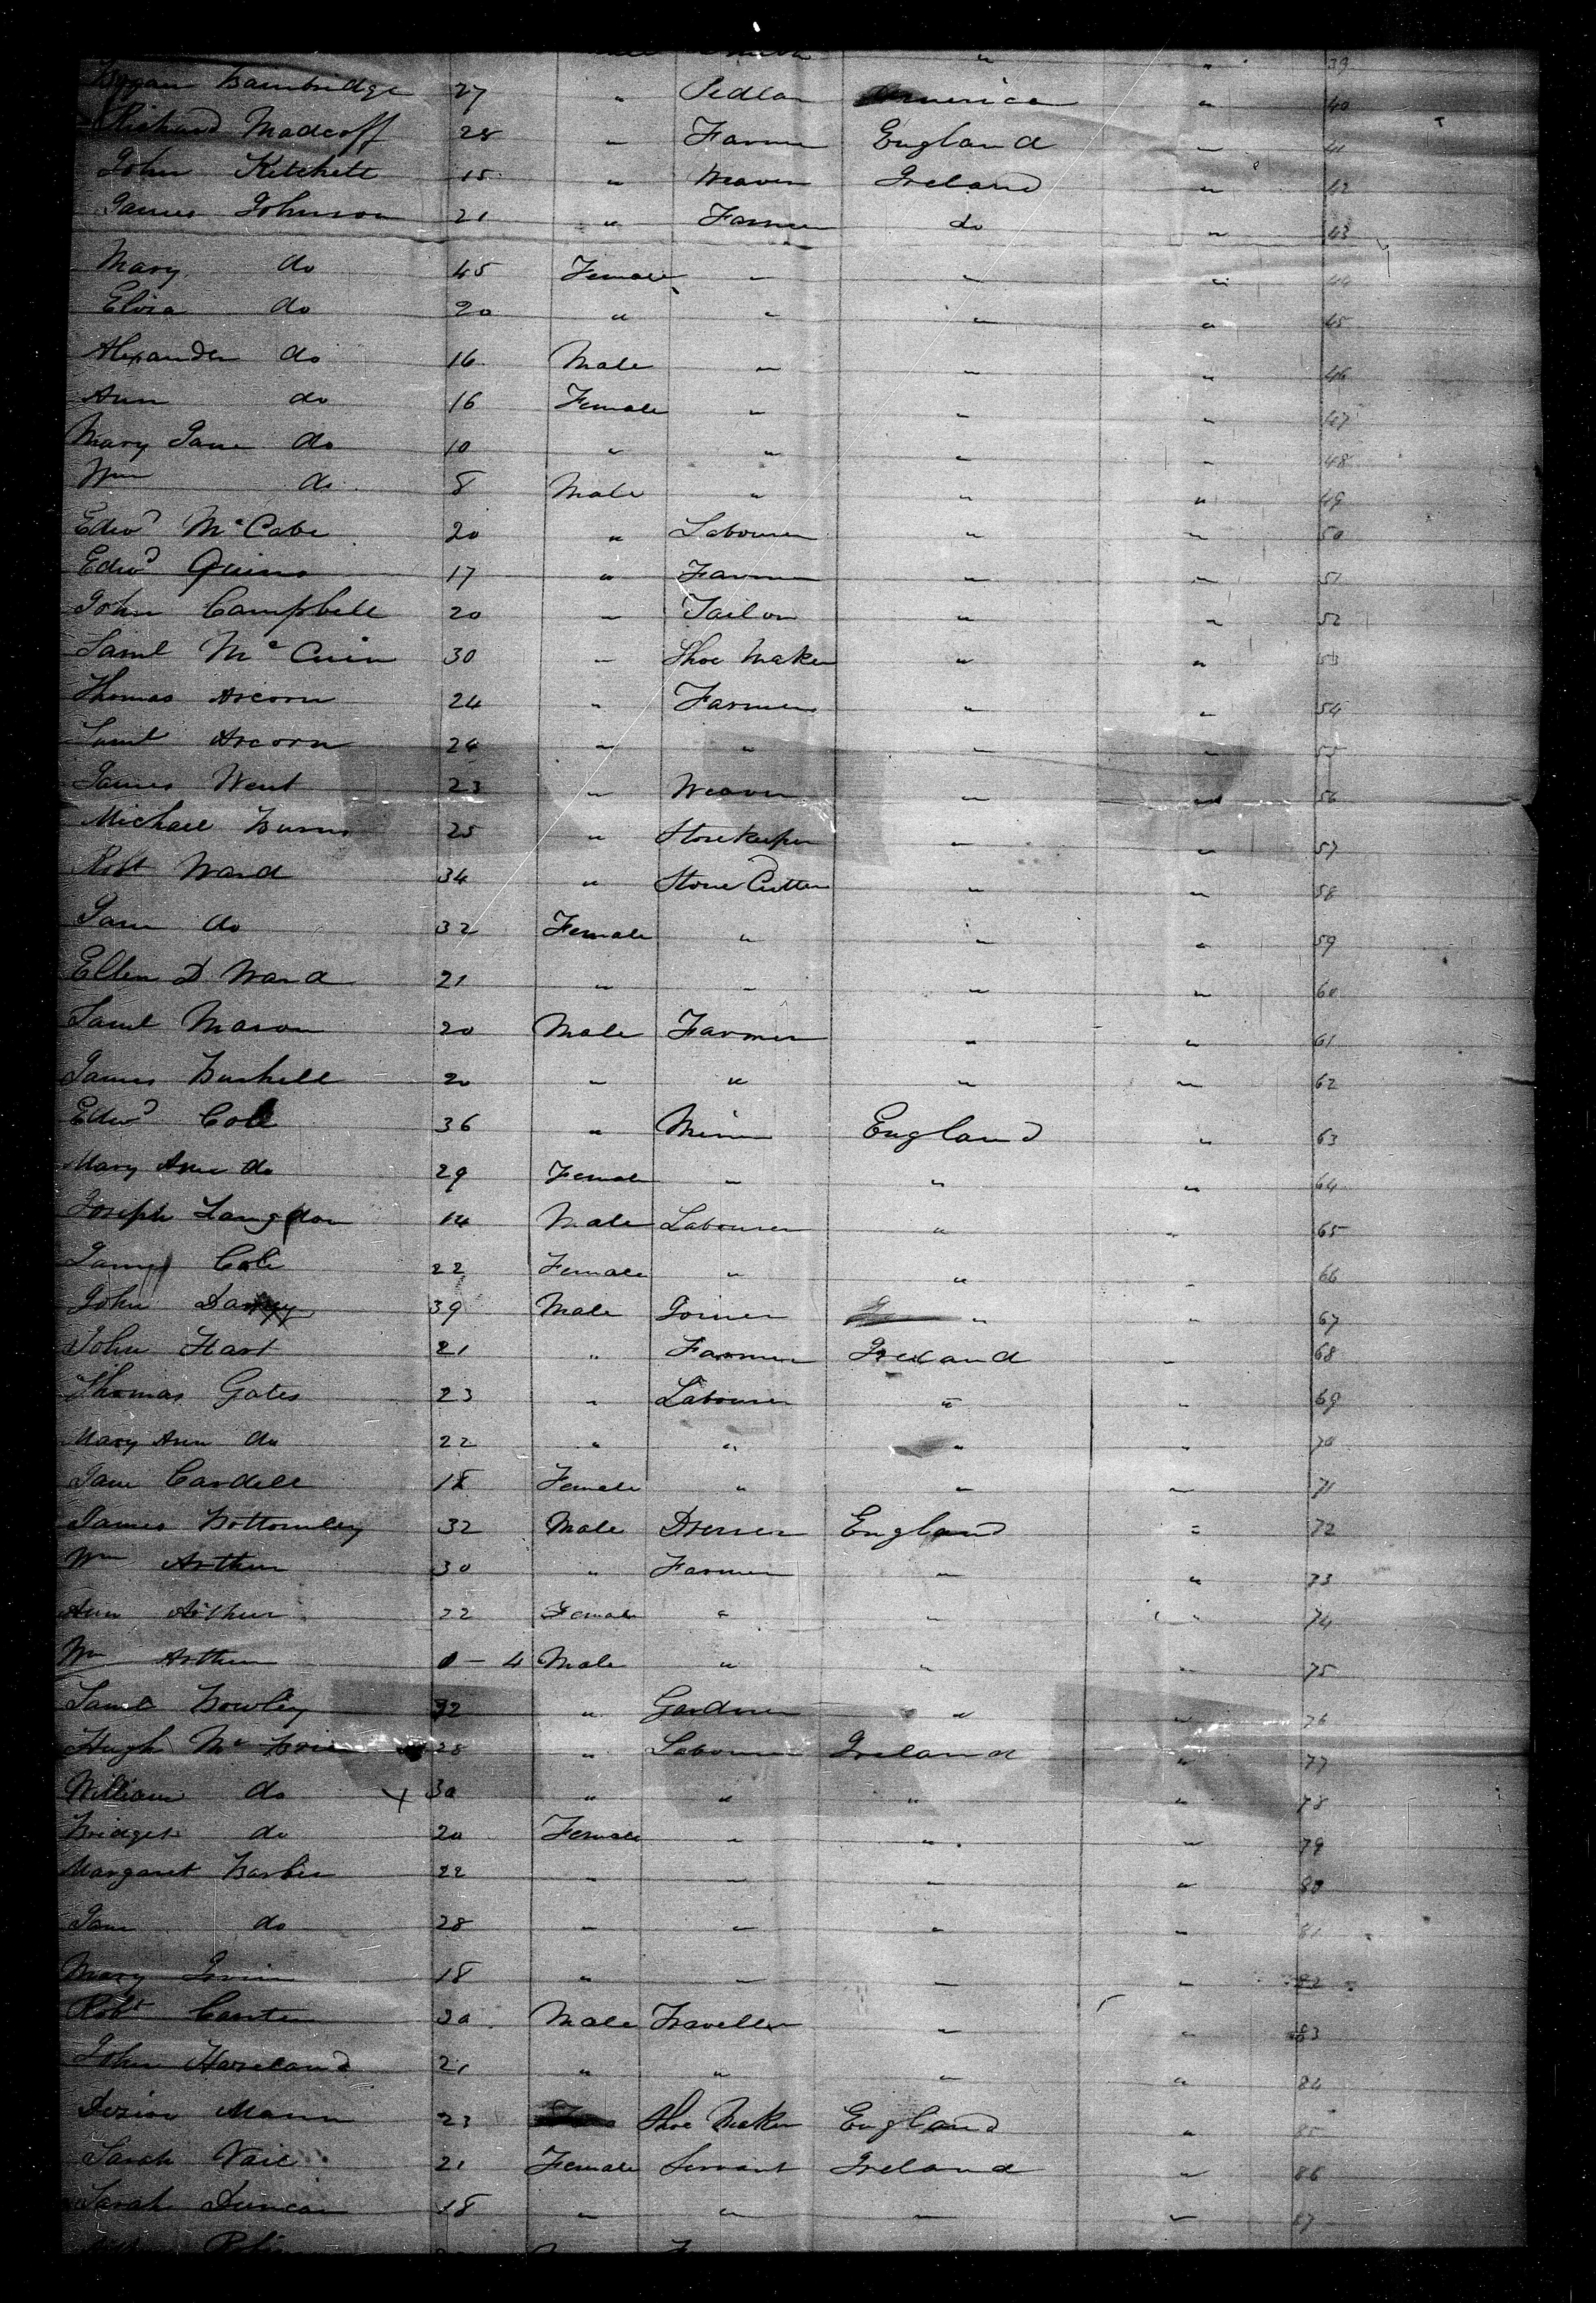 " " 39
Bambridge 27 " Pedlar America " 40
Richard Madcoff 28 " Farmer England " 41
John Kitchell 15 " Weaver Ireland " 42
James Johnson 21 " Farmer do " 43
Mary do 45 Female " " " 44
Eliza do 20 " " " " 45
Alexander do 16 Male " " " 46
Ann do 16 Female " " " 47
Mary Jane do 10 " " " " 48
Wm do 8 Male " " " 49
Edwd McCabe 20 " Labourer " " 50
Edwd Quinn 17 " Farmer " " 51
John Campbell 20 " Tailor " " 52
Saml 30 " Shoe Maker " " 53
Thomas Arcorn 24 " Farmer " " 54
Saml Arcorn 24 " " " " 55
James Went 23 " Weaver " " 56
Michael Burns 25 " Storekeeper " " 57
Robt Ward 34 " Stone Cutter " " 58
Jane do 32 Female " " " 59
Ellen D Ward 21 " " " " 60
Saml Mason 20 Male Farmer " " 61
James Bushell 20 " " " " 62
Edwd Cole 36 " Miner England " 63
Mary Ann do 29 Female " " " 64
Joseph Langdon 14 Male Labourer " " 65
Cole 22 Female " " " 66
John 39 Male Joiner " " 67
John Hart 21 " Farmer Ireland " 68
Thomas Gates 23 " Labourer " " 69
Mary Ann do 22 " " " " 70
Jane Cardell 18 Female " " " 71
James Bottomley 32 Male Dresser England " 72
Wm Arthur 30 " Farmer " " 73
Ann Arthur 22 Female " " " 74
Wm Arthur 0-4 Male " " " 75
Saml Bowley 32 " Gardner " " 76
Hugh Mc 28 " Labourer Ireland " 77
William do 30 " " " " 78
Bridget do 20 Female " " " 79
Margaret Barber 22 " " " " 80
Jane do 28 " " " " 81
Mary 18 " " " " 82
Robt Carter 30 Male Traveller " " 83
John 21 " " " " 84
Mann 23 Shoe Maker England " 85
Sarah Vail 21 Female Servant Ireland " 86
Sarah Duncan 18 " " " " 87